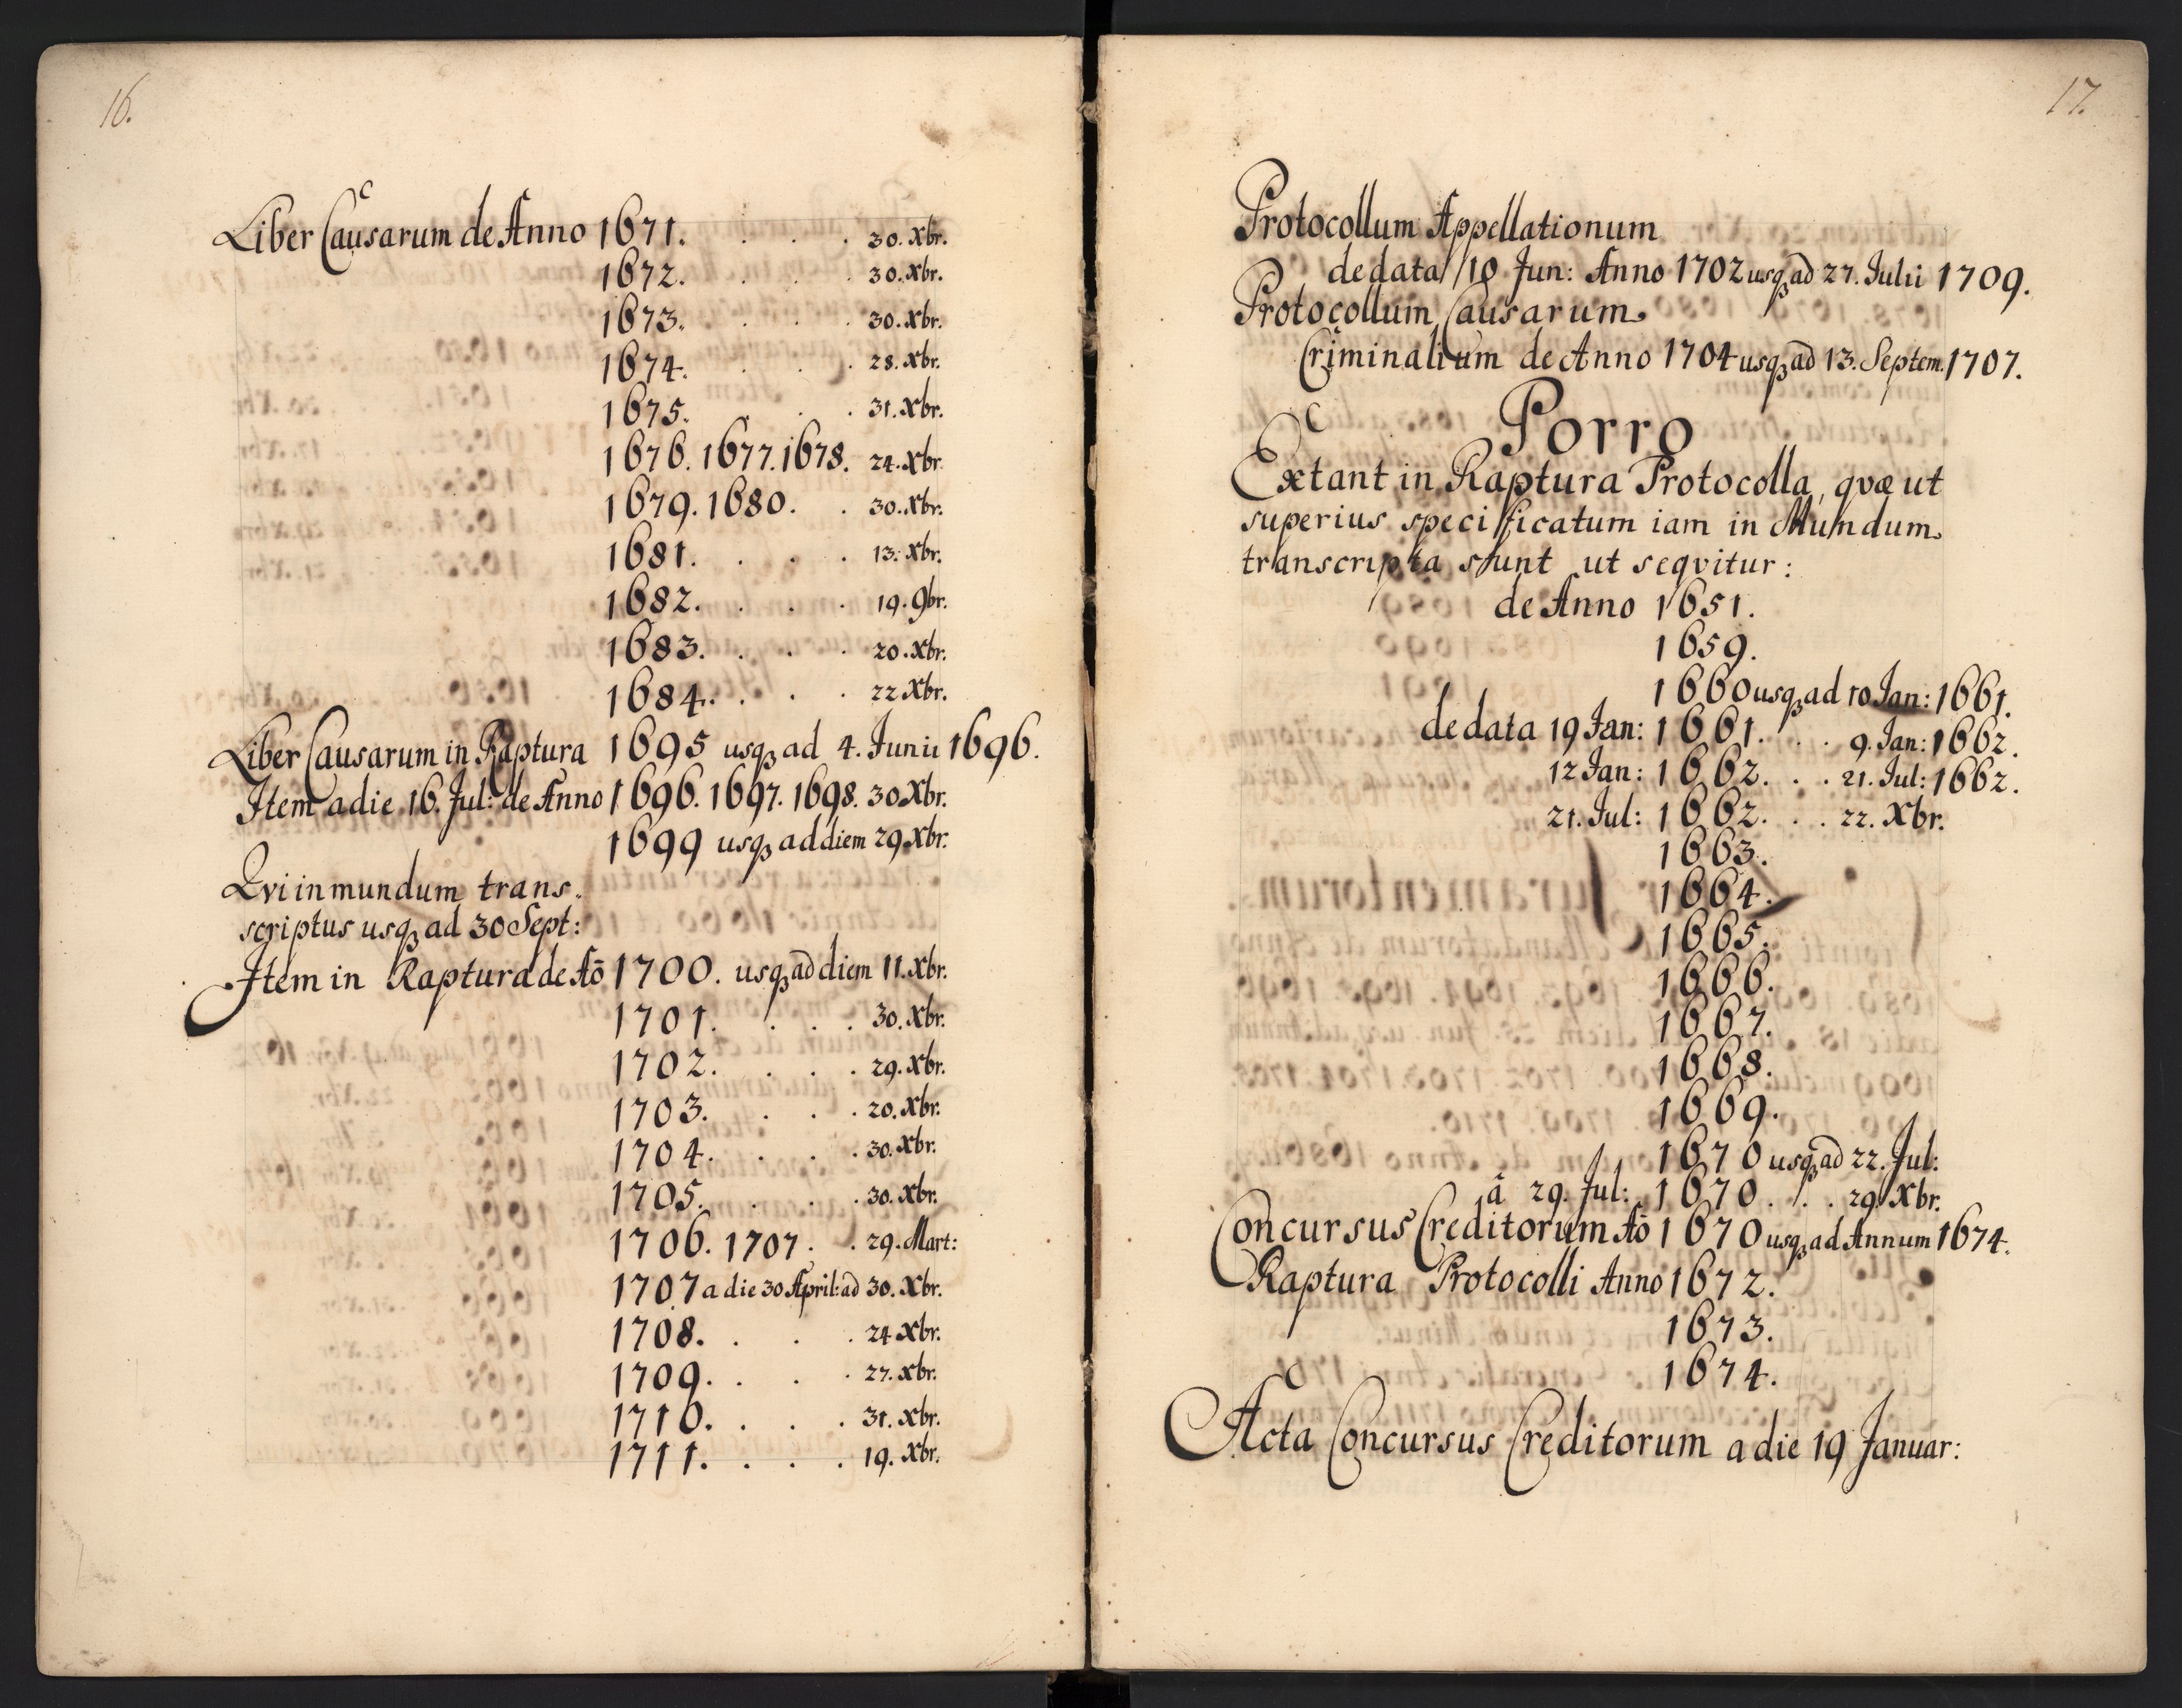 16.
Liber Causarum de Anno 1671. . . . 30. Xbr.
1672. . . . 30. Xbr.
1673. . . . 30. Xbr.
1674. . . . 28. Xbr.
1675. . . . 31. Xbr.
1676. 1677. 1678. 24. Xbr.
1679. 1680. . 30. Xbr.
1681. . . . 13. Xbr.
1682. . . . 19. 9br.
1683. . . . 20. Xbr.
1684. . . . 22 Xbr.
Liber Causarum in Raptura 1695 usqꝫ ad 4. Junii 1696.
Item a die 16. Jul: de Anno 1696. 1697. 1698. 30 Xbr.
1699 usqꝫ ad diem 29. Xbr.
Qvi in mundum trans-
scriptus usqꝫ ad 30 Sept:
Item in Raptura de Aō 1700. usqꝫ ad diem 11. Xbr.
1701. . . . 30. Xbr.
1702. . . . 29. Xbr.
1703. . . . 20. Xbr.
1704. . . . 30. Xbr.
1705. . . . 30. Xbr.
1706. 1707. . 29. Mart:
1707 a die 30 April: ad 30. Xbr.
1708. . . . 24 Xbr.
1709. . . . 27. Xbr.
1710. . . . 31. Xbr.
1711. . . . 19. Xbr.
17.
Protocollum Appellationum
de data 10 Jun: Anno 1702 usqꝫ ad 27. Julii 1709.
Protocollum Causarum
Criminalium de Anno 1704 usqꝫ ad 13. Septem. 1707.
Porro
Extant in Raptura Protocolla, qvæ ut
superius specificatum iam in Mundum
transcripta sunt ut seqvitur:
de Anno 1651.
1659.
1660 usqꝫ ad 10 Jan: 1661.
de data 19 Jan: 1661. . . 9. Jan: 1662.
12 Jan: 1662. . . 21. Jul: 1662.
21. Jul: 1662. . . 22. Xbr.
1663.
1664.
1665.
1666.
1667.
1668.
1669.
1670 usqꝫ ad 22. Jul:
â 29. Jul: 1670. . . 29. Xbr.
Concursus Creditorum Aō 1670 usqꝫ ad Annum 1674.
Raptura Protocolli Anno 1672.
1673.
1674.
Acta Concursus Creditorum a die 19 Januar: